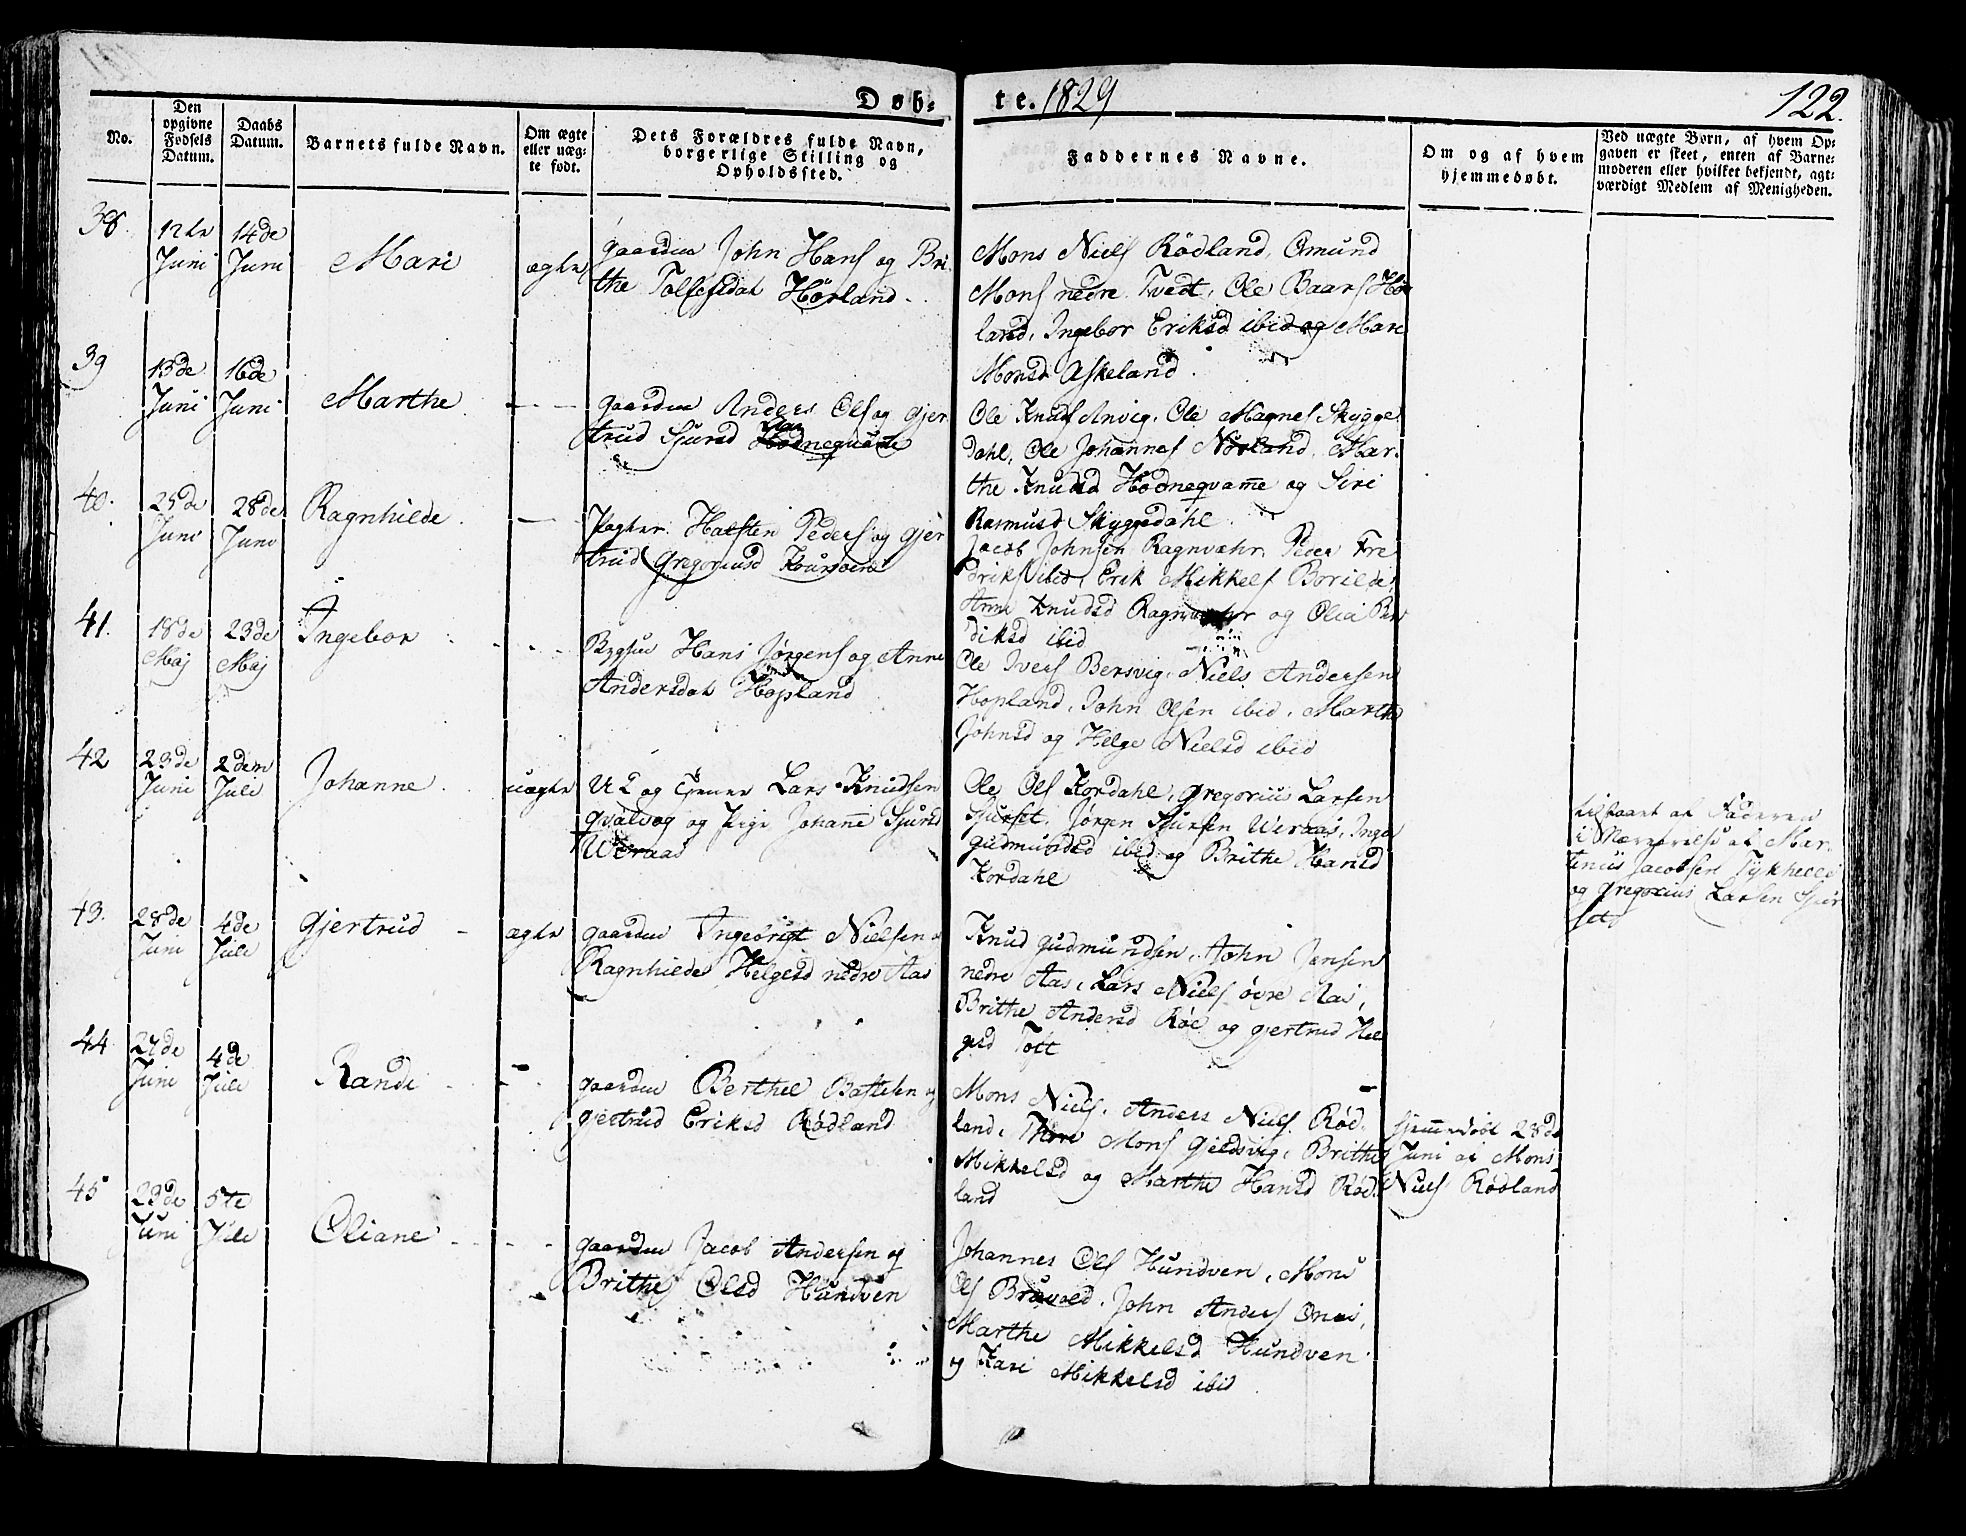 Døb- te. 1829 122.
No.
Den opgivne Fødsels Datum.
Daabs Datum.
Barnets fulde Navn.
Om ægte eller uæg- te født.
Dets Forældres fulde Navn, borgerlige Stilling og Opholdssted.
Faddernes Navne.
Om og af hvem hjemmedøbt.
Ved uægte Børn, af hvem Op- gaven er skeet, enten af Barne- moderen eller hvilket bekjendt, agt- værdigt Medlem af Menigheden.
38. 12te Juni 14de Juni Mari ægte
gaardm John Hans og Bri
the Tollefsdat Hørland
Mons Niels Rødland, Omund
Mons nedre Tvedt, Ole Baars Hør
land, Ingebor Eriksd ibid og Mari
Monsd Askeland.
39 13de Juni 16de Juni Marthe
gaardm Anders Ols og Gjer
trud Sjursd Hodneqvame
Ole Knuds Anvig, Ole Magnes Skygge
dahl, Ole Johannes Nørland, Mar
the Knudsd Hodneqvame og Siri
Rasmusd Skyggedahl
40. 25de Juni 28de Juni Ragnhilde
Halsten Peders og Gjer
trud Gregoriusd
Jacob Johnsen Ragnvahr, Peder Fre
driks ibid, Erik Mikkels Borilde,
Anne Knudsd og Olia Ben
diksd ibid
41. 18de Maj 23de Maj Ingebor
Bygsm Hans Jørgens og Anne
Andersdat Hopland
Ole Ivers Bersvig, Niels Andersen
Hopland, John Olsen ibid, Marthe
Johnsd og Helge Nielsd ibid
42 23de Juni 2den Juli Johanne uægte
og Lars Knudsen
Qvalvog og Pige Johane Sjursd
Weraas
Ole Ols Kordahl, Gregorius Larsen
Sjurset, Jørgen Sjursen Weraas, Inga
Gudmundsd ibid og Brithe Hansd
Kordahl
tilstaaet af Faderen
i Nærværelse af Mar
tinus Jacobsen
og Gregorius Larsen Sjur
set
43. 28de Juni 4de Juli Gjertrud ægte
gaardm Ingebrigt Nielsen og
Ragnhilde Helgesd nedre Aas
Knud Gudmundsen, John Jensen
nedre Aas, Lars Niels øvre Aas,
Brithe Andersd Røe og Gjertrud Hel
gesd Toft
44 27de Juni 4de Juli Randi
gaardm Berthel Baltesen og
Gjertrud Eriksd Rødland
Mons Niels, Anders Niels Rød
land, Mons Gjeldsvig, Brithe
Mikkelsd og Marthe Hansd Rød
land
hjemmedøbt 28de
Juni af Mons
Niels Rødland
45 23de Juni 5te Juli Oliane
gaardm Jacob Andersen og
Brithe Olsd Hundven
Johannes Ols Hundven, Mons
Ols Bruvold, John Anders
Marthe Mikkelsd Hundven
og Kari Mikkelsd ibid